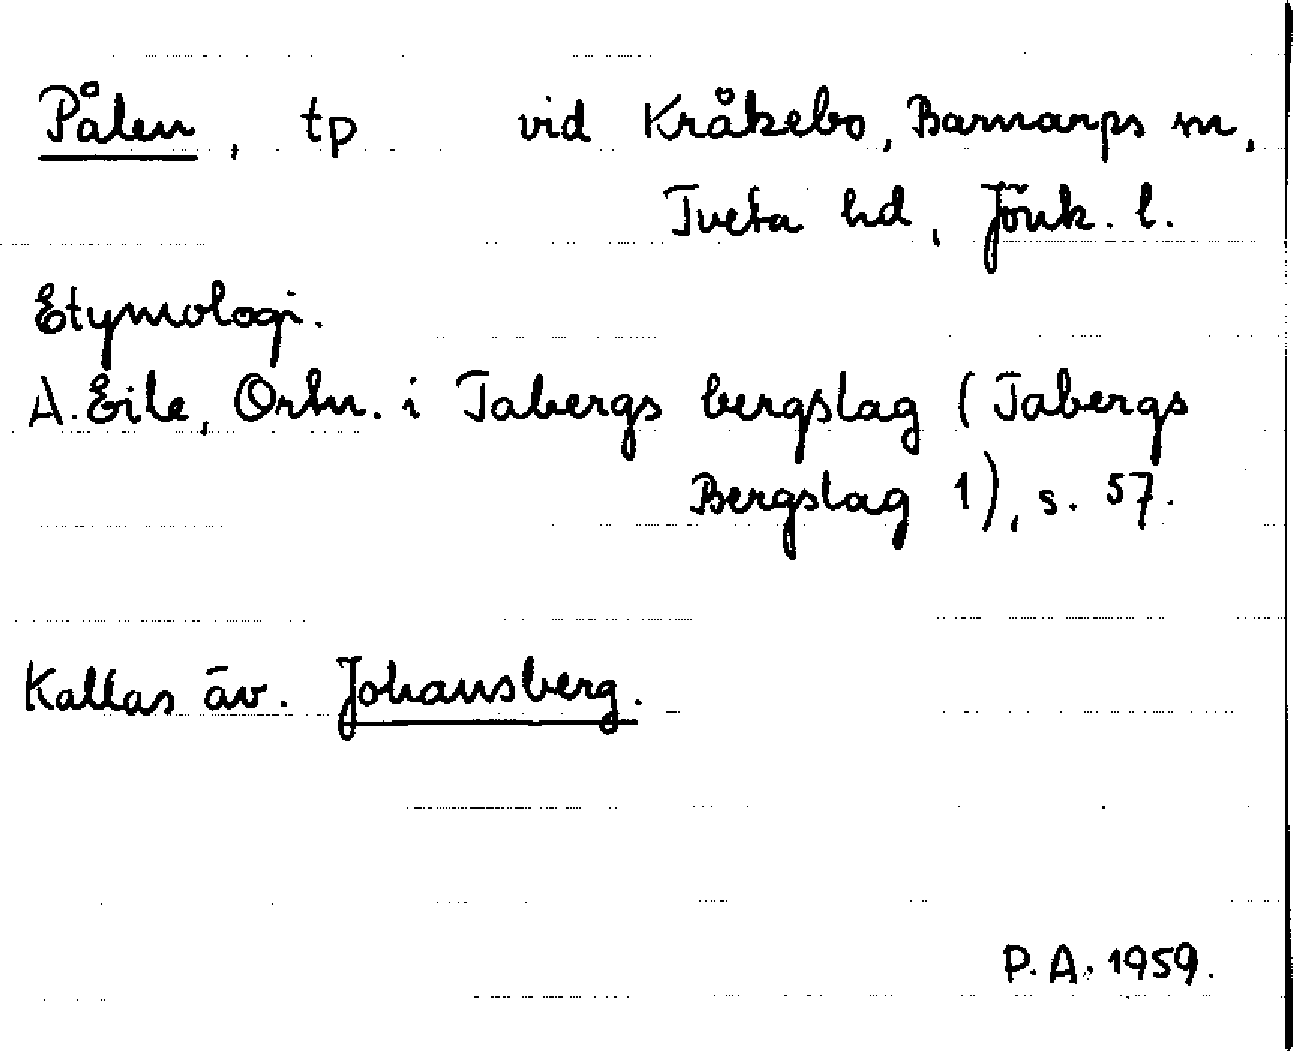 Pålen, tp vid Kråkebo, Barnarps sn,
Tveta hd, Jönk. l.
Etymologi.
A. Ejle, Ortn. i Tabergs bergslag (Tabergs
Bergslag 1), s. 57.
Kallas äv. Johansberg.
P. A. 1959.